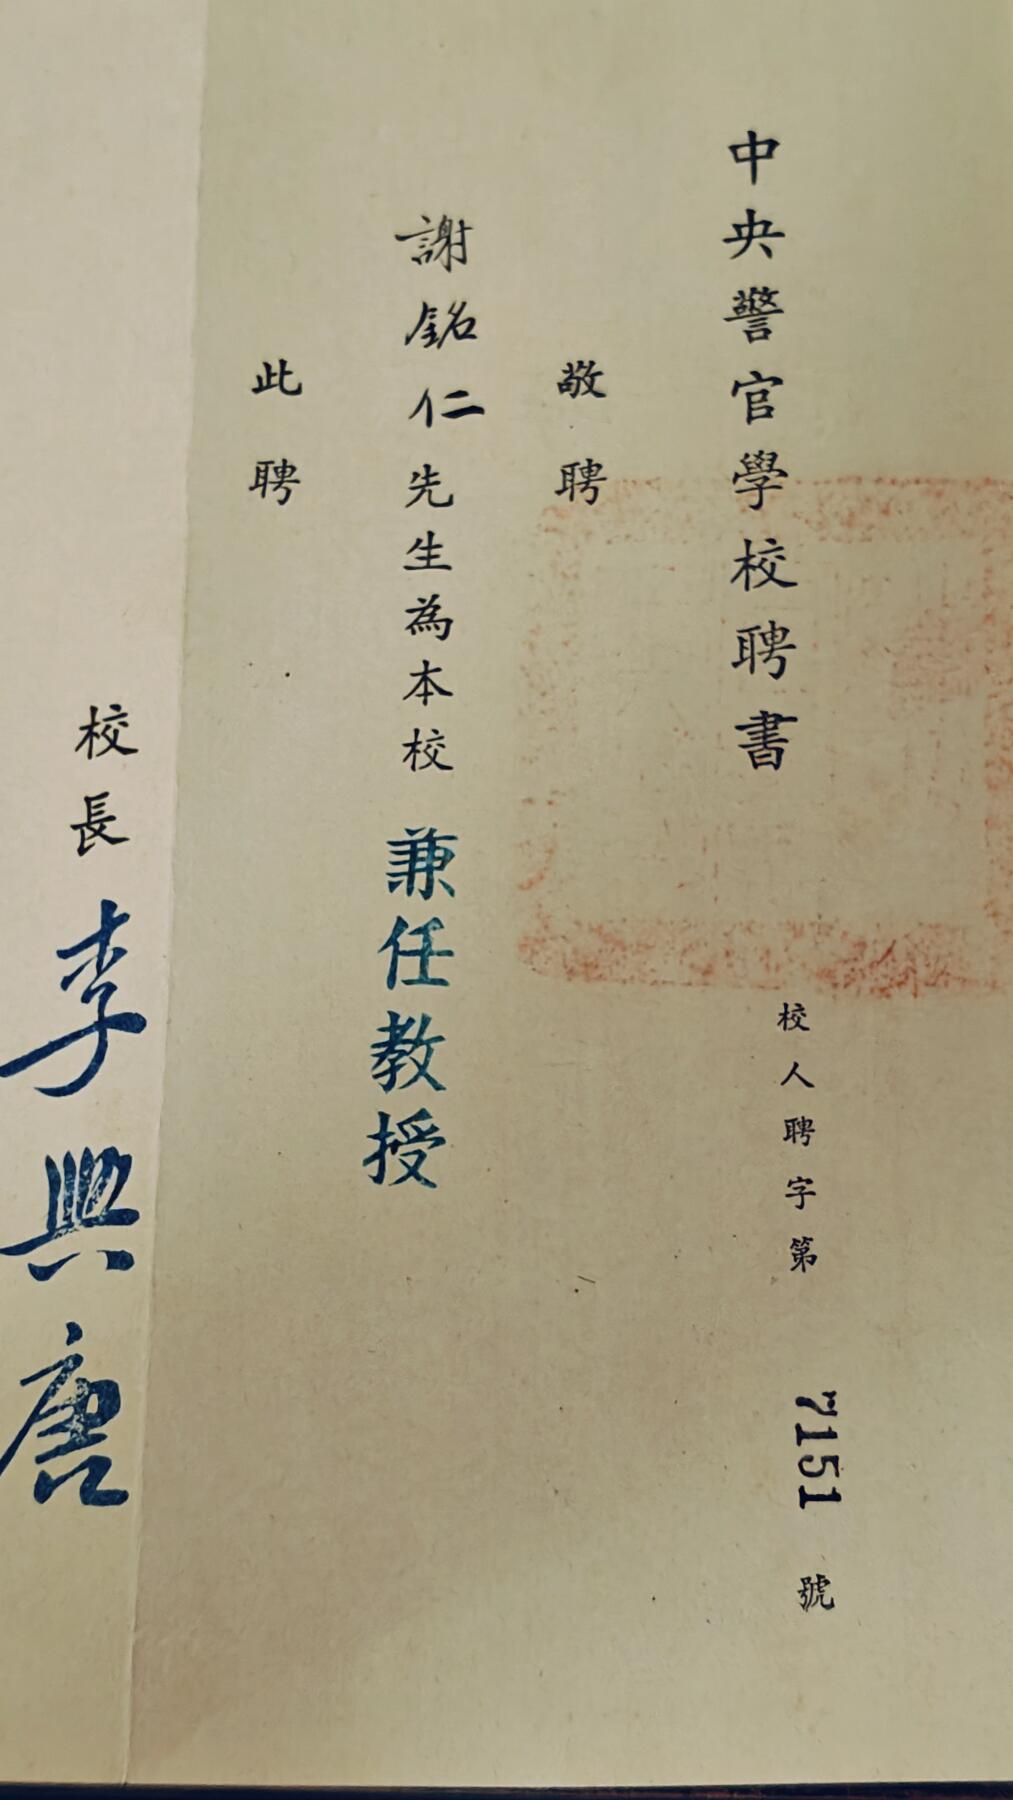 中央警官學校聘書
校人聘字第7151號
敬聘
謝銘仁先生為本校兼任教授
此聘
校長李興唐